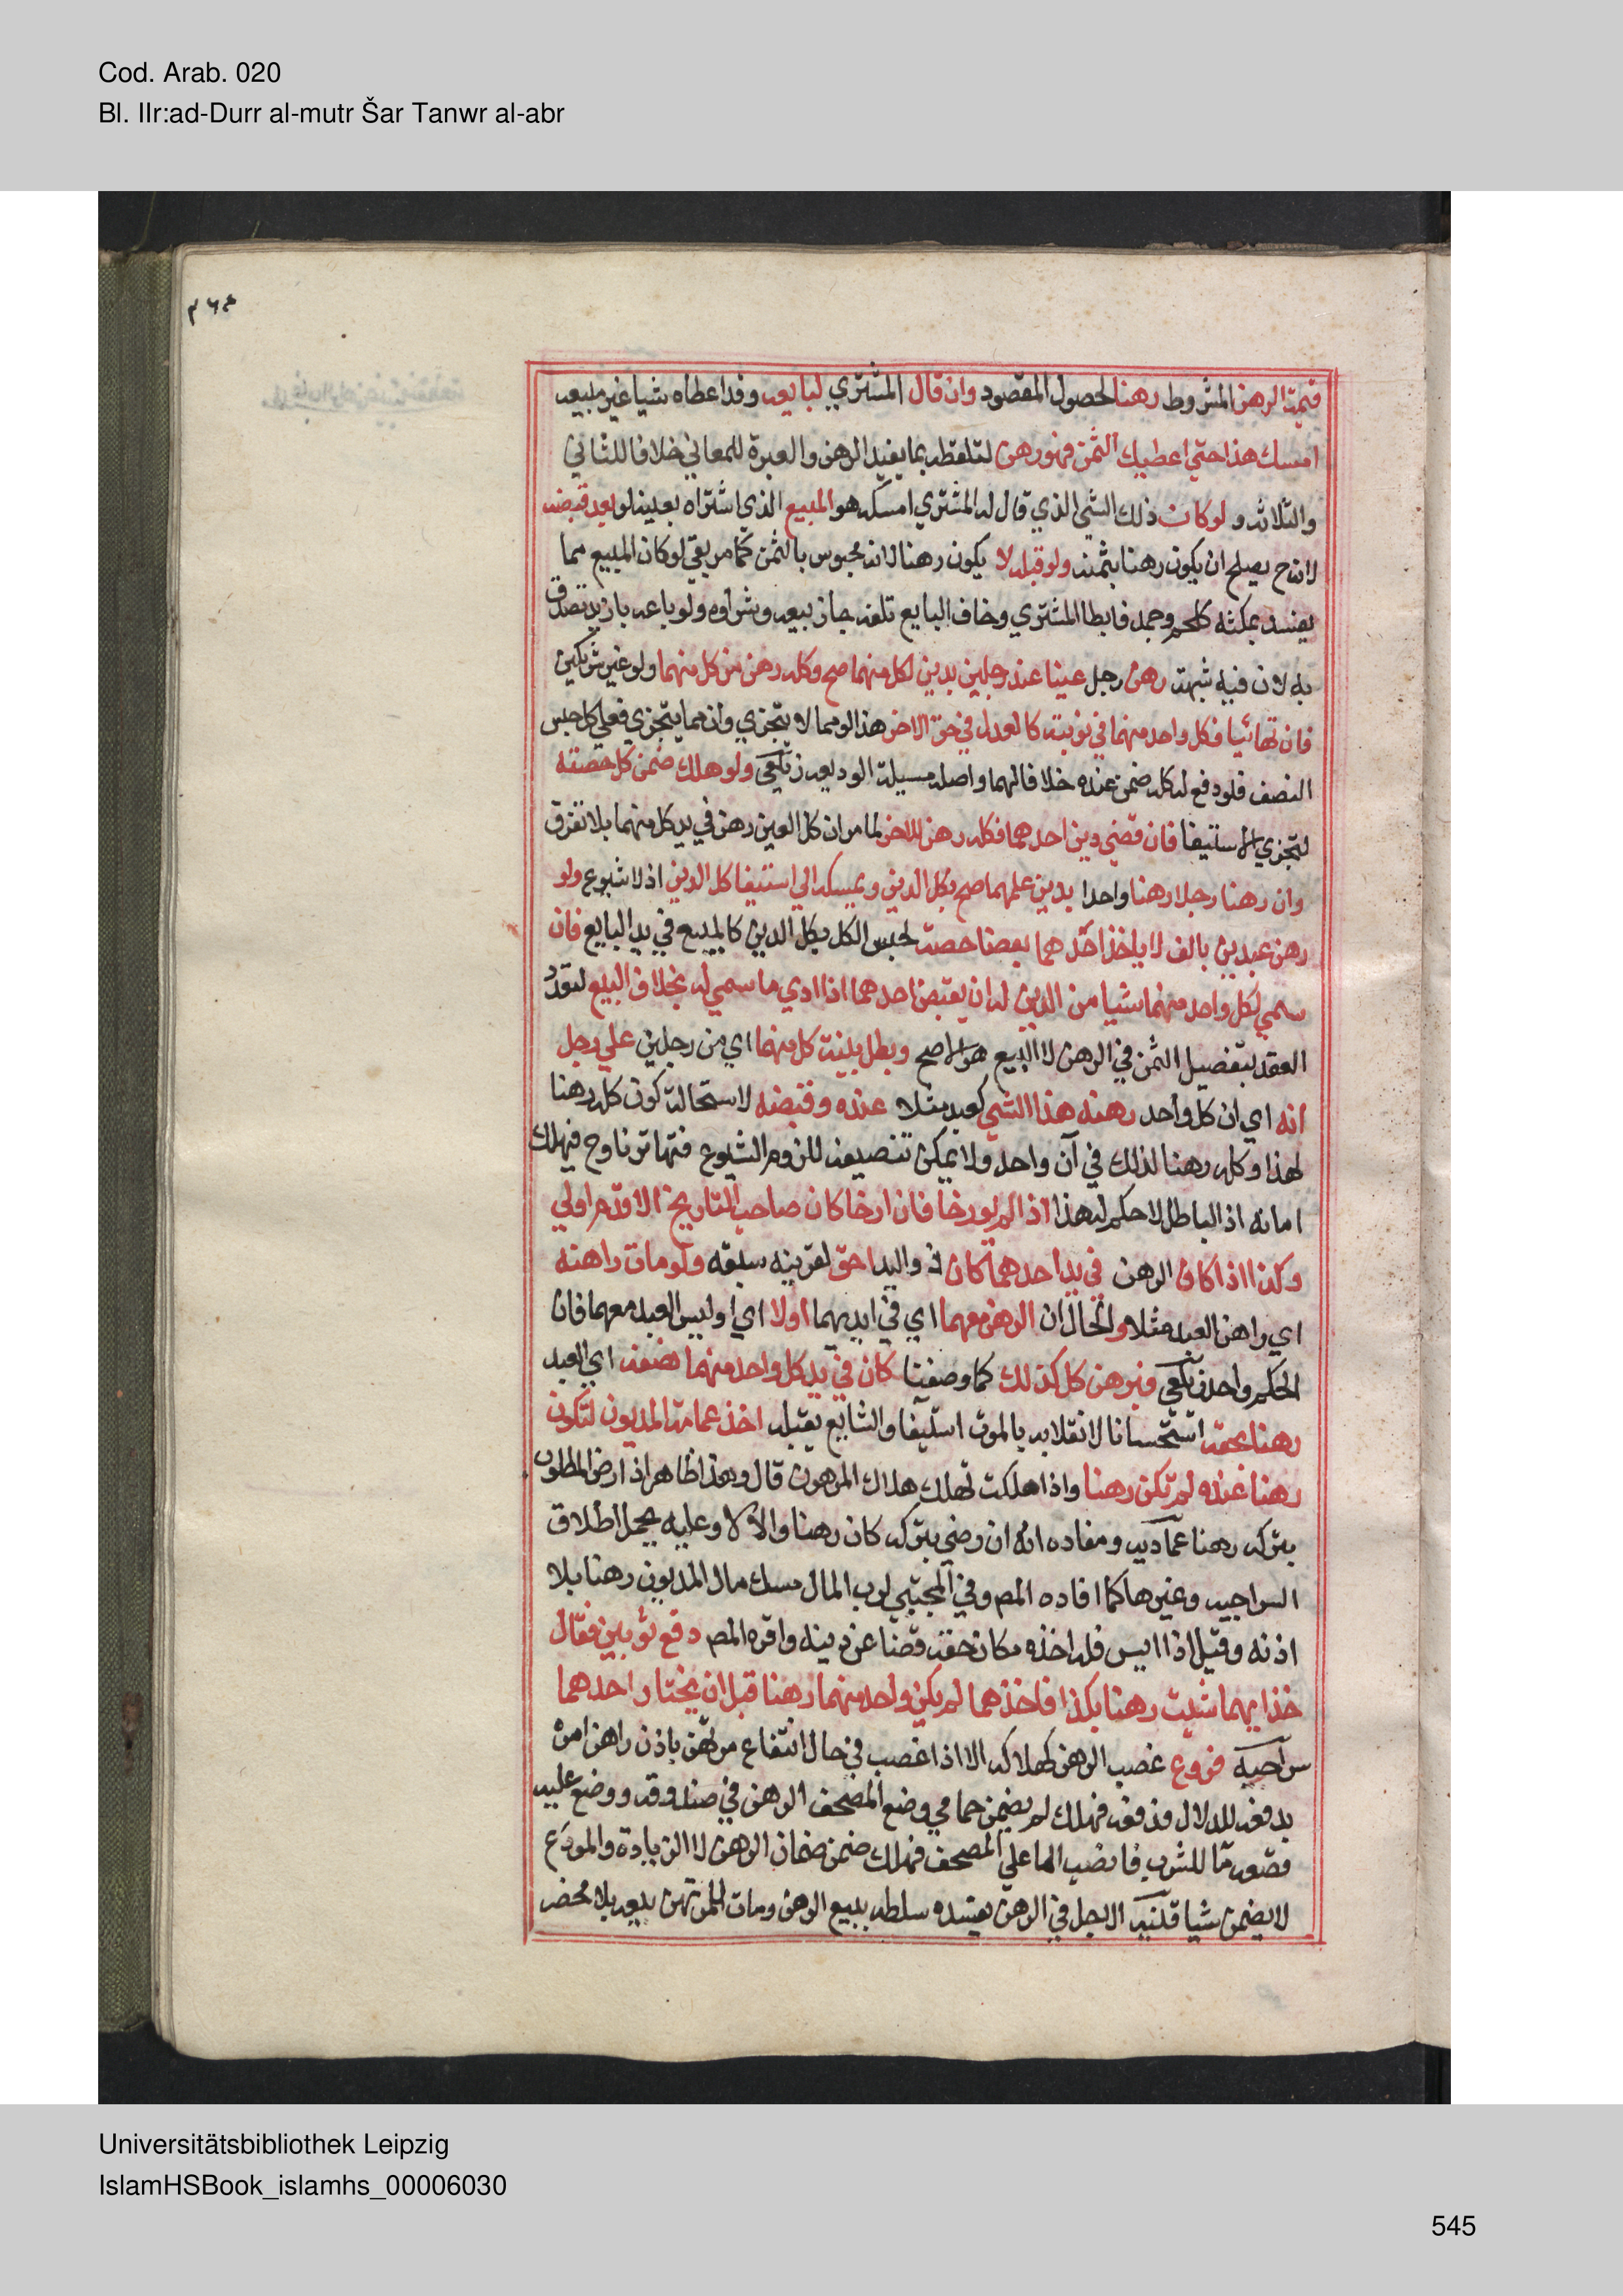 Cod. Arab. 020
Bl. IIr:ad-Durr al-mutr Šar Tanwr al-abr
قيمة الرهن المشروط رهنا لحصول المقصود وان قال المشتري لبايعه وقد اعطاه شيا غير مبيعه
امسك هذا حتي اعطيك الثمن فهو رهن لتلفظه بما يفيد الرهن والعبرة للمعاني خلافا للثاني
والثلاثه و لو كان ذلك الشي الذي قال له المشتري امسكه هو المبيع الذي اشتراه بعينه لو بعد قبضه
لانه ح يصلح ان يكون رهنا بثمنه ولو قبله لا يكون رهنا لانه محبوس بالثمن كما مر بقي لو كان المبيع مما
يفسد بمكثه كلحم وجمد فابطا المشتري وخاف البايع تلفه جاز بيعه وشراوه ولو باعه بازيد تصدق
به لان فيه شبهة رهن رجل عينا عند رجلين بدين لكل منهما صح وكله رهن من كل منهما ولو غير شريكين
فان تهائيا فكل واحد منهما في نوبته كالعدل في حق الاخر هذا لو مما لا يتجزي وان مما يتجزي فعلي كل حبس
النصف فلو دفع له كله ضمن عنده خلافا لهما واصله مسيلة الوديعه زيلعي ولو هلك ضمن كل حصته
لتجزي الاستيفا فان قضي دين احدهما فكله رهن للاخر لما مر ان كل العين رهن في يد كل منهما بلا تفرق
وان رهنا رجلا رهنا واحدا بدين عليهما صح بكل الدين ويمسكه الي استيفا كل الدين اذ لا شيوع ولو
رهن عبدين بالف لا ياخذ احدهما بعضا حصته لحبس الكل بكل الدين كالمبيع في يد البايع فان
سمي لكل واحد منهما شيا من الدين له ان يقبض احدهما اذا ادي ما سمي له بخلاف البيع لتعدد
العقد بتفصيل الثمن في الرهن لا البيع هو الاصح وبطل بينة كل منهما اي من رجلين علي رجل
انه اي ان كل واحد رهنه هذا الشي كعبد مثلا عنده وقبضه لاستحالة كون كله رهنا
لهذا وكله رهنا لذلك في آن واحد ولا يمكن تنصيفه للزوم الشيوع فتهاترتا وح فيهلك
امانه اذ الباطل لا حكم له هذا اذا لم يورخا فان ارخا كان صاحب التاريخ الاقدم اولي
وكذا اذا كان الرهن في يد احدهما كان ذو اليد احق لقرينه سبقه ولو مات راهنه
اي راهن العبد مثلا والحال ان الرهن معهما اي في ايديهما اولا اي او ليس العبد معهما فان
الحكم واحد زيلعي فبرهن كل كذلك كما وصفنا كان في يد كل واحد منهما نصفه اي العبد
رهنا بحقه استحسانا لانقلابه بالموت استيفا والشايع يقبله اخذ عمامة المديون لتكون
رهنا عنده لم تكن رهنا واذا هلكت تهلك هلاك المرهون قال وهذا ظاهر اذا رضي المطلوب
بتركه رهنا عماديه ومفاده انه ان رضي بتركه كان رهنا والا لا وعليه يحمل اطلاق
السراجيه وغيرها كما افاده المص وفي المجتبي لرب المال مسك مال المديون رهنا بلا
اذنه وقيل اذا ايس فله اخذه مكان حقه قضا عن دينه واقره المص دفع ثوبين فقال
خذ ايهما شيت رهنا بكذا فاخذهما لم يكن واحد منهما رهنا قبل ان يختار احدهما
سراجيه فروع غصب الرهن كهلاكه الا اذا غصب في حال انتفاع مرتهن باذن راهن امره
بدفعه للدلال فدفعه فهلك لم يضمن حمامي وضع المصحف الرهن في صندوقه ووضع عليه
قصعه ما للشرب فانصب الما علي المصحف فهلك ضمن ضمان الرهن لا الزيادة والمودع
لا يضمن شيا قنيه الاجل في الرهن يفسده سلطه ببيع الرهن ومات للمرتهن بيعه بلا محضر
Universitätsbibliothek Leipzig
IslamHSBook_islamhs_00006030
545